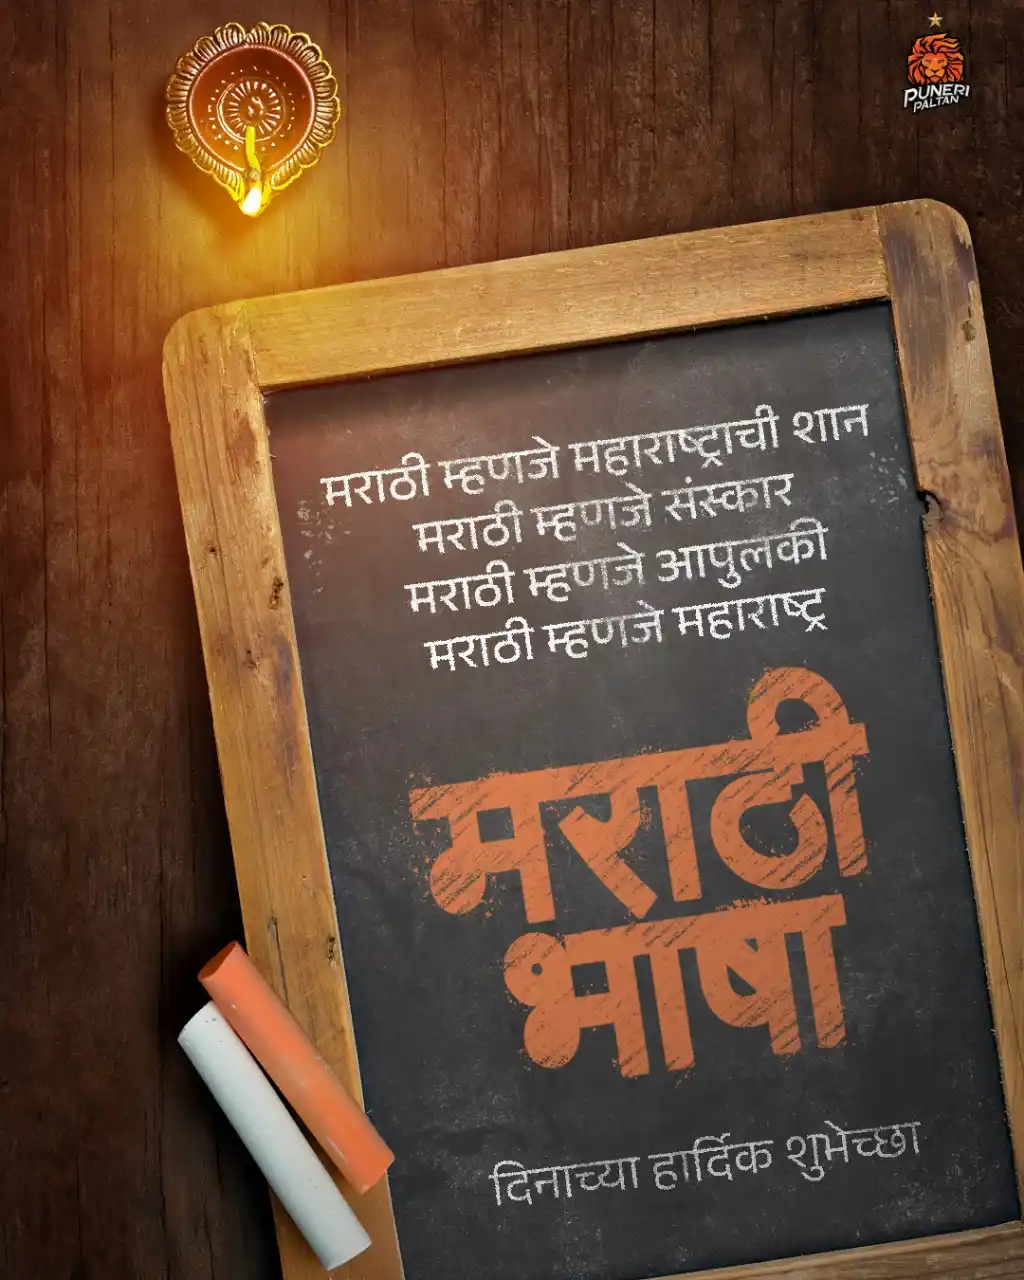 PUNERI
PALTAN
मराठी म्हणजे महाराष्ट्राची शान
मराठी म्हणजे संस्कार
मराठी म्हणजे आपुलकी
मराठी म्हणजे महाराष्ट्र
मराठी
भाषा
दिनाच्या हार्दिक शुभेच्छा